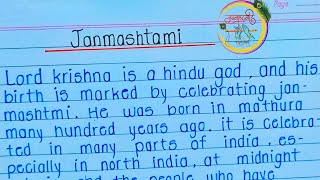 Page
Janmashtami
Lord krishna is a hindu god, and his
birth is marked by celebrating jan-
mashtmi. He was born in mathura
many hundred years ago. it is celebra-
ted in many parts of india, es-
pecially in north india, at midnight
and the people who have